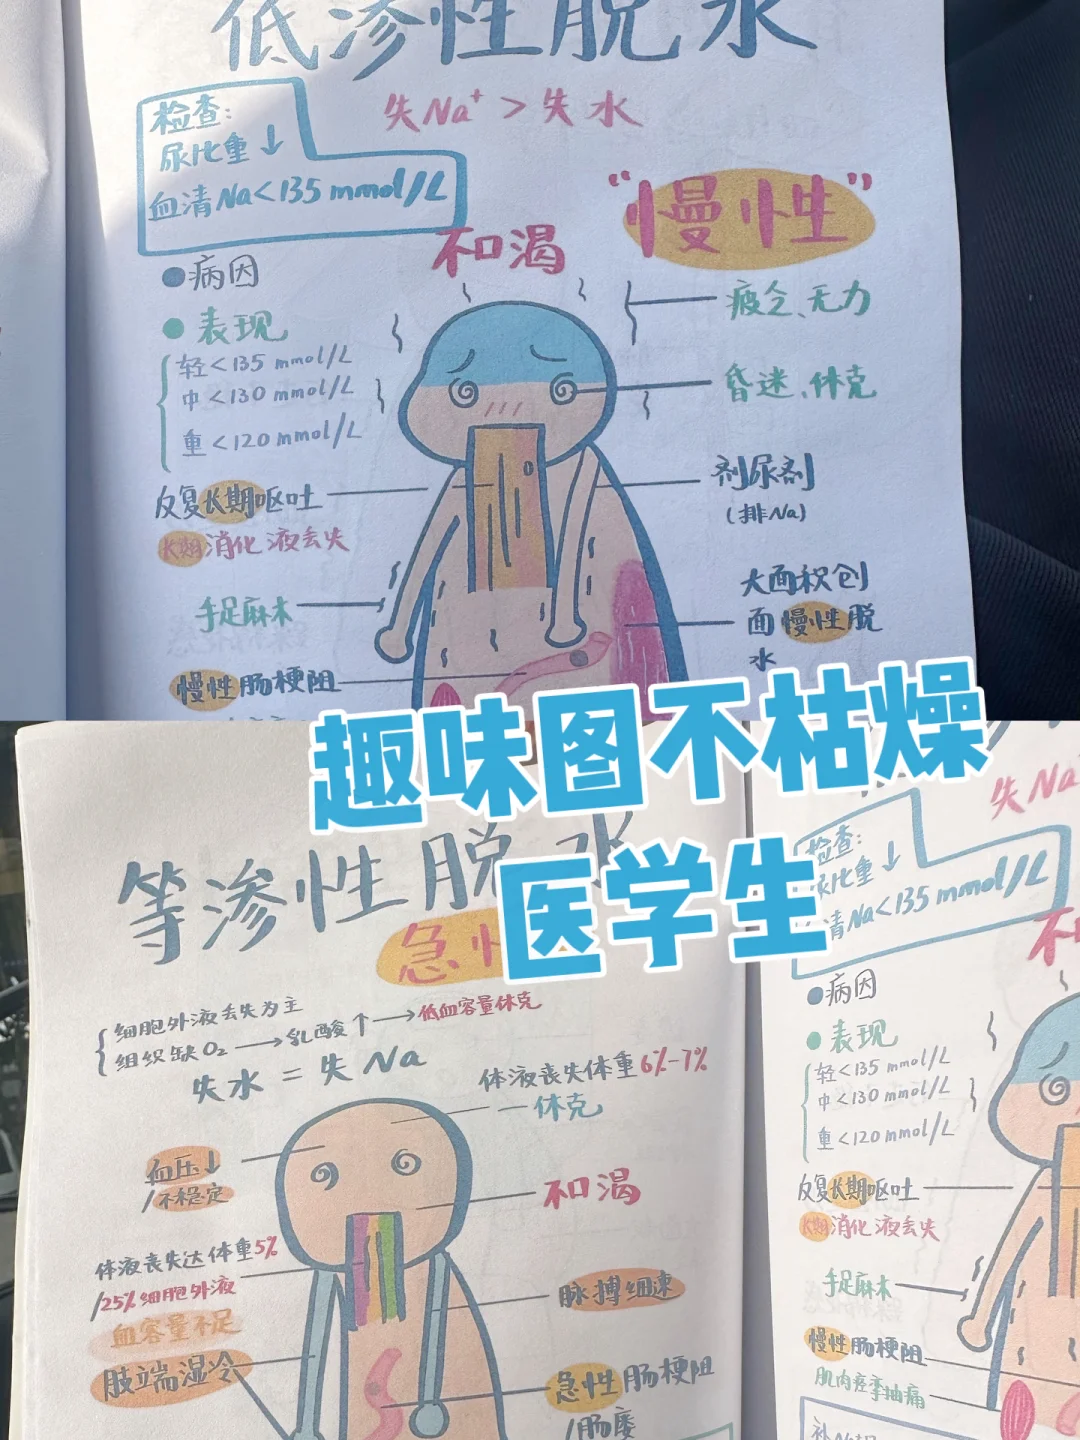 低渗性脱水
检查:
尿比重↓
血清Na<135 mmol/L
失Na⁺>失水
“慢性”
不口渴
病因
表现
轻<135 mmol/L
中<130 mmol/L
重<120 mmol/L
疲乏、无力
昏迷、休克
反复长期呕吐
长期消化液丢失
利尿剂
(排Na)
手足麻木
大面积创
面慢性脱
水
慢性肠梗阻
趣味图不枯燥
医学生
等渗性脱水
急性
细胞外液丢失为主
组织缺O₂→乳酸↑→低血容量休克
失水=失Na
体液丧失体重6%-7%
休克
血压↓
/不稳定
不口渴
体液丧失达体重5%
/25%细胞外液
血容量不足
肢端湿冷
脉搏细速
急性肠梗阻
/肠瘘
失Na
检查:
尿比重↓
清Na<135 mmol/L
不
病因
表现
轻<135 mmol/L
中<130 mmol/L
重<120 mmol/L
反复长期呕吐
长期消化液丢失
手足麻木
慢性肠梗阻
肌肉痉挛抽痛